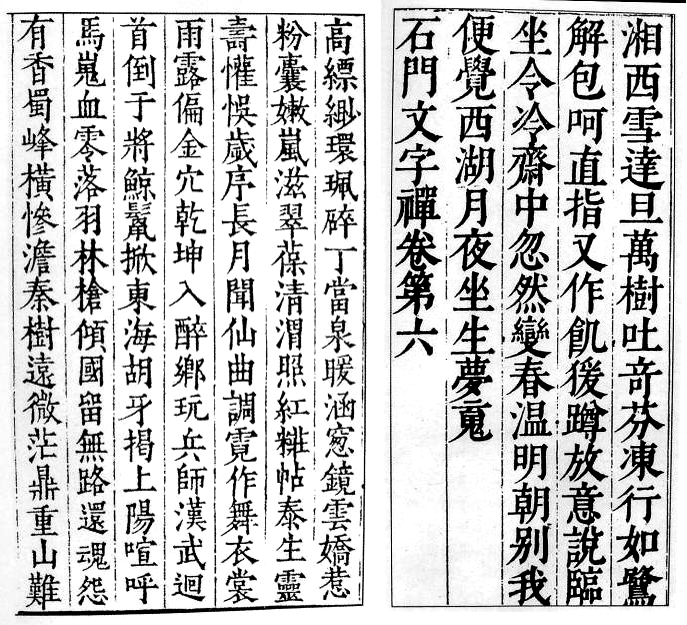 湘西雪達旦萬樹吐奇芬凍行如鷺
解包呵直指又作飢猨蹲放意說臨
坐令冷齋中忽然變春温明朝别我
便覺西湖月夜坐生夢䰟
石門文字禪卷第六
高縹緲環珮碎丁當泉暖涵窓鏡雲嬌惹
粉囊嫩嵐滋翠葆清渭照紅粧帖泰生靈
壽懽悞歲序長月聞仙曲調霓作舞衣裳
雨露偏金穴乾坤入醉鄉玩兵師漢武迴
首倒于將鯨鬣掀東海胡牙揭上陽喧呼
馬嵬血零落羽林槍傾國留無路還魂怨
有香蜀峰橫慘澹秦樹遠微茫鼎重山難